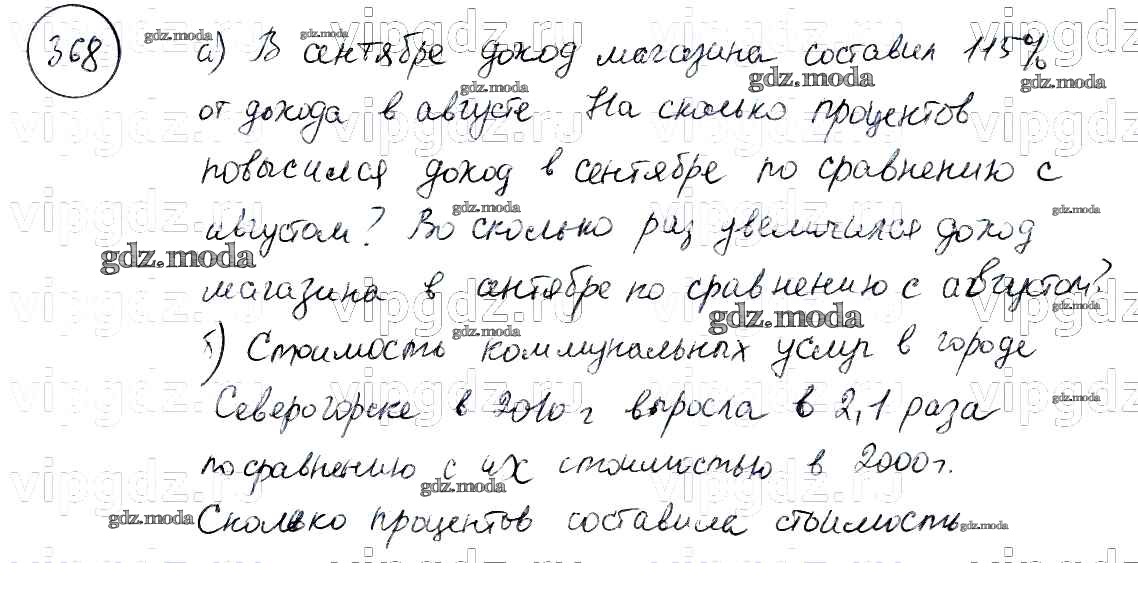 368
а) В сентябре доход магазина составил 115%
от дохода в августе На сколько процентов
повысился доход в сентябре по сравнению с
августом? Во сколько раз увеличился доход
магазина в сентябре по сравнению с августом?
б) Стоимость коммунальных услуг в городе
Североморске в 2010 г выросла в 2,1 раза
по сравнению с их стоимостью в 2000 г.
Сколько процентов составила стоимость